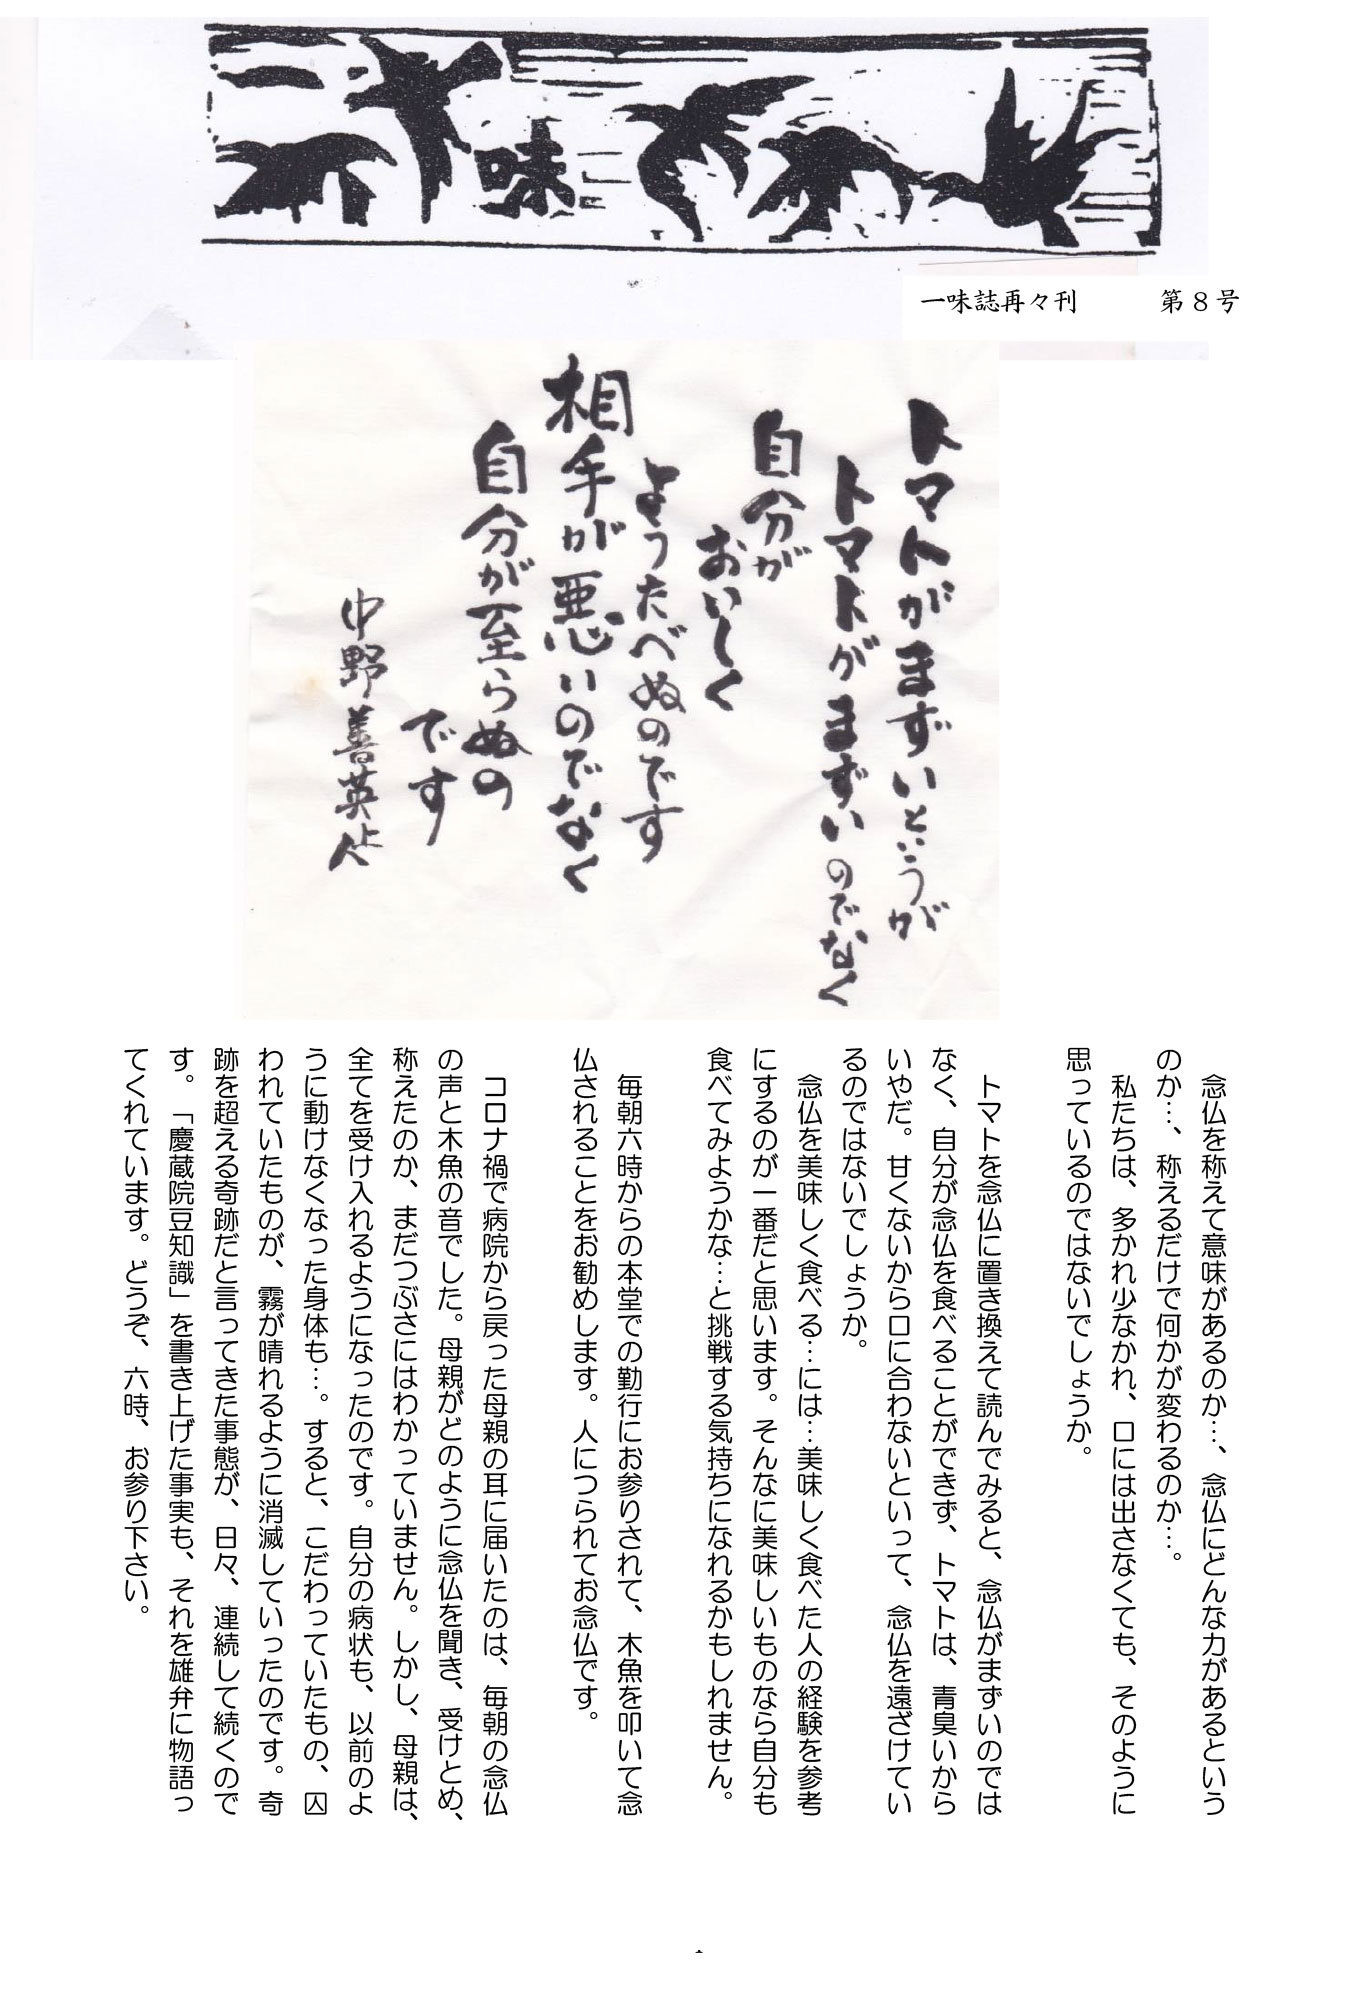 一味
一味誌再々刊　第８号
トマトがまずいというが
トマトがまずいのでなく
自分が
おいしく
ようたべぬのです
相手が悪いのでなく
自分が至らぬの
です
中野善英上人
念仏を称えて意味があるのか…、念仏にどんな力があるという
のか…、称えるだけで何かが変わるのか…。
私たちは、多かれ少なかれ、口には出さなくても、そのように
思っているのではないでしょうか。
トマトを念仏に置き換えて読んでみると、念仏がまずいのでは
なく、自分が念仏を食べることができず、トマトは、青臭いから
いやだ。甘くないから口に合わないといって、念仏を遠ざけてい
るのではないでしょうか。
念仏を美味しく食べる…には…美味しく食べた人の経験を参考
にするのが一番だと思います。そんなに美味しいものなら自分も
食べてみようかな…と挑戦する気持ちになれるかもしれません。
毎朝六時からの本堂での勤行にお参りされて、木魚を叩いて念
仏されることをお勧めします。人につられてお念仏です。
コロナ禍で病院から戻った母親の耳に届いたのは、毎朝の念仏
の声と木魚の音でした。母親がどのように念仏を聞き、受けとめ、
称えたのか、まだつぶさにはわかっていません。しかし、母親は、
全てを受け入れるようになったのです。自分の病状も、以前のよ
うに動けなくなった身体も…。すると、こだわっていたもの、囚
われていたものが、霧が晴れるように消滅していったのです。奇
跡を超える奇跡だと言ってきた事態が、日々、連続して続くので
す。「慶蔵院豆知識」を書き上げた事実も、それを雄弁に物語っ
てくれています。どうぞ、六時、お参り下さい。
1